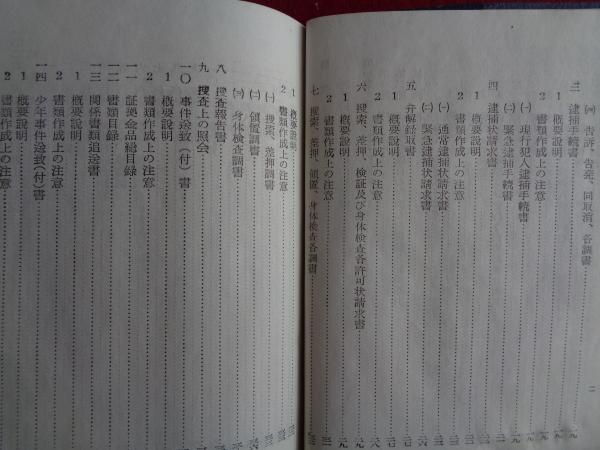 ㈣ 告訴、告発、同取消、各調書
三 逮捕手続書
1 概要説明
2 書類作成上の注意
㈠ 現行犯人逮捕手続書
㈡ 緊急逮捕手続書
四 逮捕状請求書
1 概要説明
2 書類作成上の注意
㈠ 通常逮捕状請求書
㈡ 緊急逮捕状請求書
五 弁解録取書
1 概要説明
2 書類作成上の注意
六 捜索、差押、検証及び身体検査各許可状請求書
1 概要説明
2 書類作成上の注意
七 捜索、差押、領置、身体検査各調書
二
1 概要説明
2 書類作成上の注意
㈠ 捜索、差押調書
㈡ 領置調書
㈢ 身体検査調書
八 捜査報告書
九 捜査上の照会
一〇 事件送致(付)書
1 概要説明
2 書類作成上の注意
一一 証拠金品総目録
一二 書類目録
一三 関係書類追送書
1 概要説明
2 書類作成上の注意
一四 少年事件送致(付)書
1 概要説明
2 書類作成上の注意